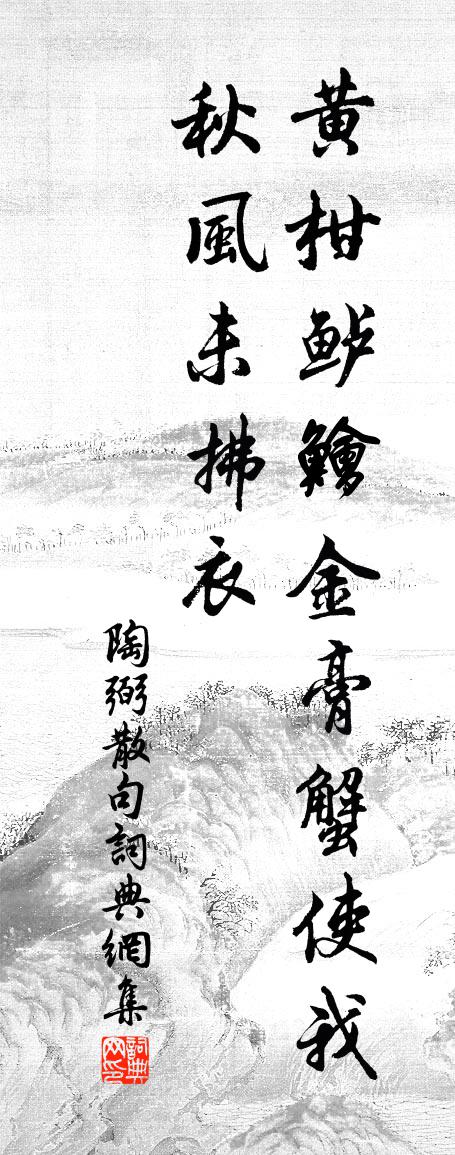 黄柑鲈鱠金膏蟹使我
秋風未拂衣
陶弼散句詞典網集
詞典网印